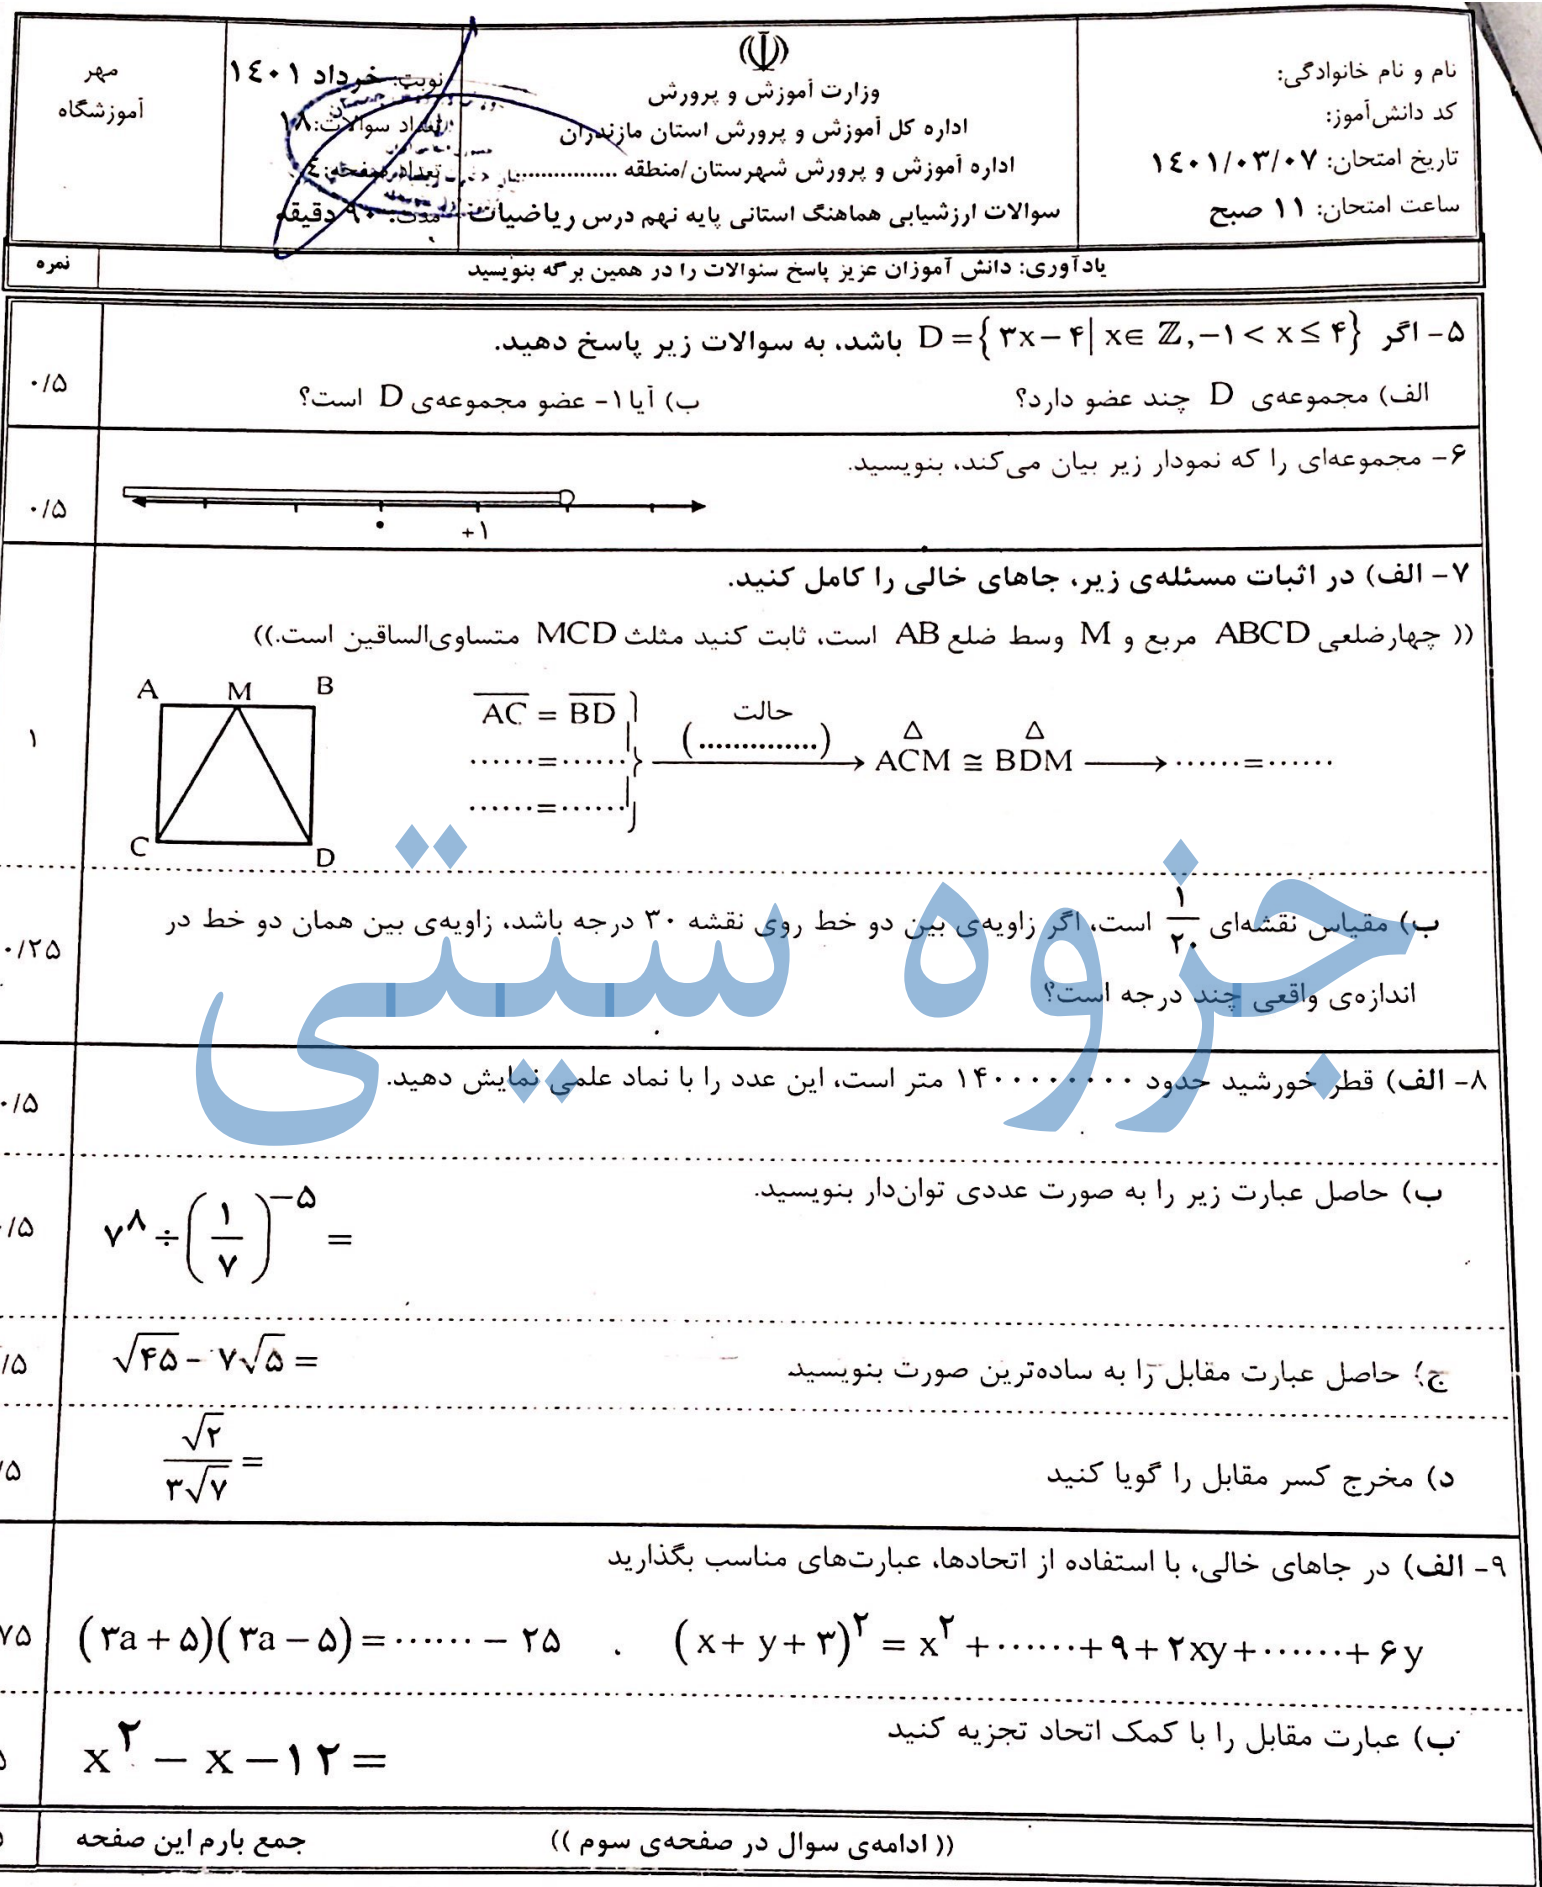 نام و نام خانوادگی:
کد دانش‌آموز:
تاریخ امتحان: ۱۴۰۱/۰۳/۰۷
ساعت امتحان: ۱۱ صبح
وزارت آموزش و پرورش
اداره کل آموزش و پرورش استان مازندران
اداره آموزش و پرورش شهرستان/منطقه ................
سوالات ارزشیابی هماهنگ استانی پایه نهم درس ریاضیات
نوبت: خرداد ۱۴۰۱
تعداد سوالات: ۱۸
تعداد صفحه: ۴
مدت: ۹۰ دقیقه
مهر
آموزشگاه
یادآوری: دانش آموزان عزیز پاسخ سئوالات را در همین برگه بنویسید
نمره
۵- اگر D={ ۳x−۴| x∈ ℤ,−۱< x≤ ۴} باشد، به سوالات زیر پاسخ دهید.
الف) مجموعه‌ی D چند عضو دارد؟ ب) آیا ۱- عضو مجموعه‌ی D است؟
۰/۵
۶- مجموعه‌ای را که نمودار زیر بیان می‌کند، بنویسید.
۰ +۱
۰/۵
۷- الف) در اثبات مسئله‌ی زیر، جاهای خالی را کامل کنید.
(( چهارضلعی ABCD مربع و M وسط ضلع AB است، ثابت کنید مثلث MCD متساوی‌الساقین است.))
A M B
C D
AC = BD
......=......
......=......
حالت
(..............)
ACM ≅ BDM → ......=......
۱
ب) مقیاس نقشه‌ای ۱/۲۰ است، اگر زاویه‌ی بین دو خط روی نقشه ۳۰ درجه باشد، زاویه‌ی بین همان دو خط در
اندازه‌ی واقعی چند درجه است؟
۰/۲۵
جزوه سیتی
۸- الف) قطر خورشید حدود ۱۴۰۰۰۰۰۰۰۰ متر است، این عدد را با نماد علمی نمایش دهید.
۰/۵
ب) حاصل عبارت زیر را به صورت عددی توان‌دار بنویسید.
۷^۸ ÷ (۱/۷)^−۵ =
/۵
ج) حاصل عبارت مقابل را به ساده‌ترین صورت بنویسید
√۴۵ − ۷√۵ =
/۵
د) مخرج کسر مقابل را گویا کنید
√۲ / ۳√۷ =
/۵
۹- الف) در جاهای خالی، با استفاده از اتحادها، عبارت‌های مناسب بگذارید
(۳a + ۵)(۳a − ۵) = ....... − ۲۵ . (x+ y+ ۳)^۲ = x^۲ +.......+۹+۲xy+.......+۶y
۷۵
ب) عبارت مقابل را با کمک اتحاد تجزیه کنید
x^۲ − x −۱۲ =
(( ادامه‌ی سوال در صفحه‌ی سوم ))
جمع بارم این صفحه